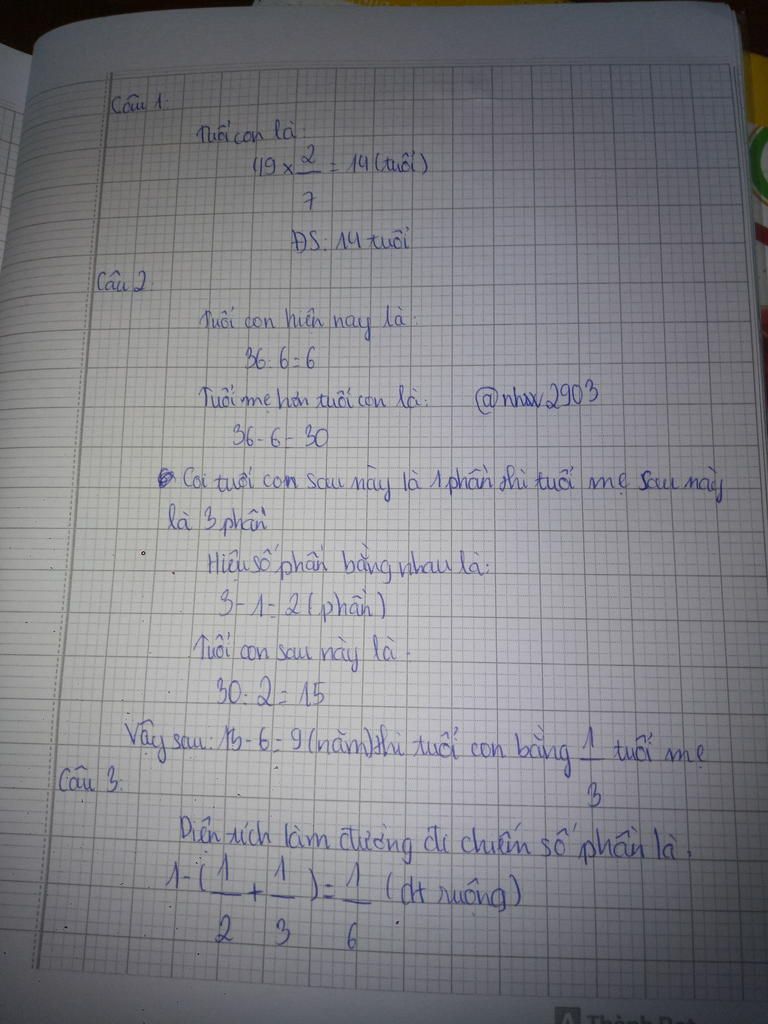 Câu 1:
Tuổi con là:
49 × 2/7 = 14 (tuổi)
ĐS: 14 tuổi
Câu 2
Tuổi con hiện nay là:
36 : 6 = 6
Tuổi mẹ hơn tuổi con là: @nhax2903
36 - 6 = 30
Coi tuổi con sau này là 1 phần thì tuổi mẹ sau này
là 3 phần
Hiệu số phần bằng nhau là:
3 - 1 = 2 (phần)
Tuổi con sau này là:
30 : 2 = 15
Vậy sau: 15 - 6 = 9 (năm) thì tuổi con bằng 1/3 tuổi mẹ
Câu 3:
Diện tích làm đường đi chiếm số phần là:
1 - (1/2 + 1/3) = 1/6 (dt ruộng)